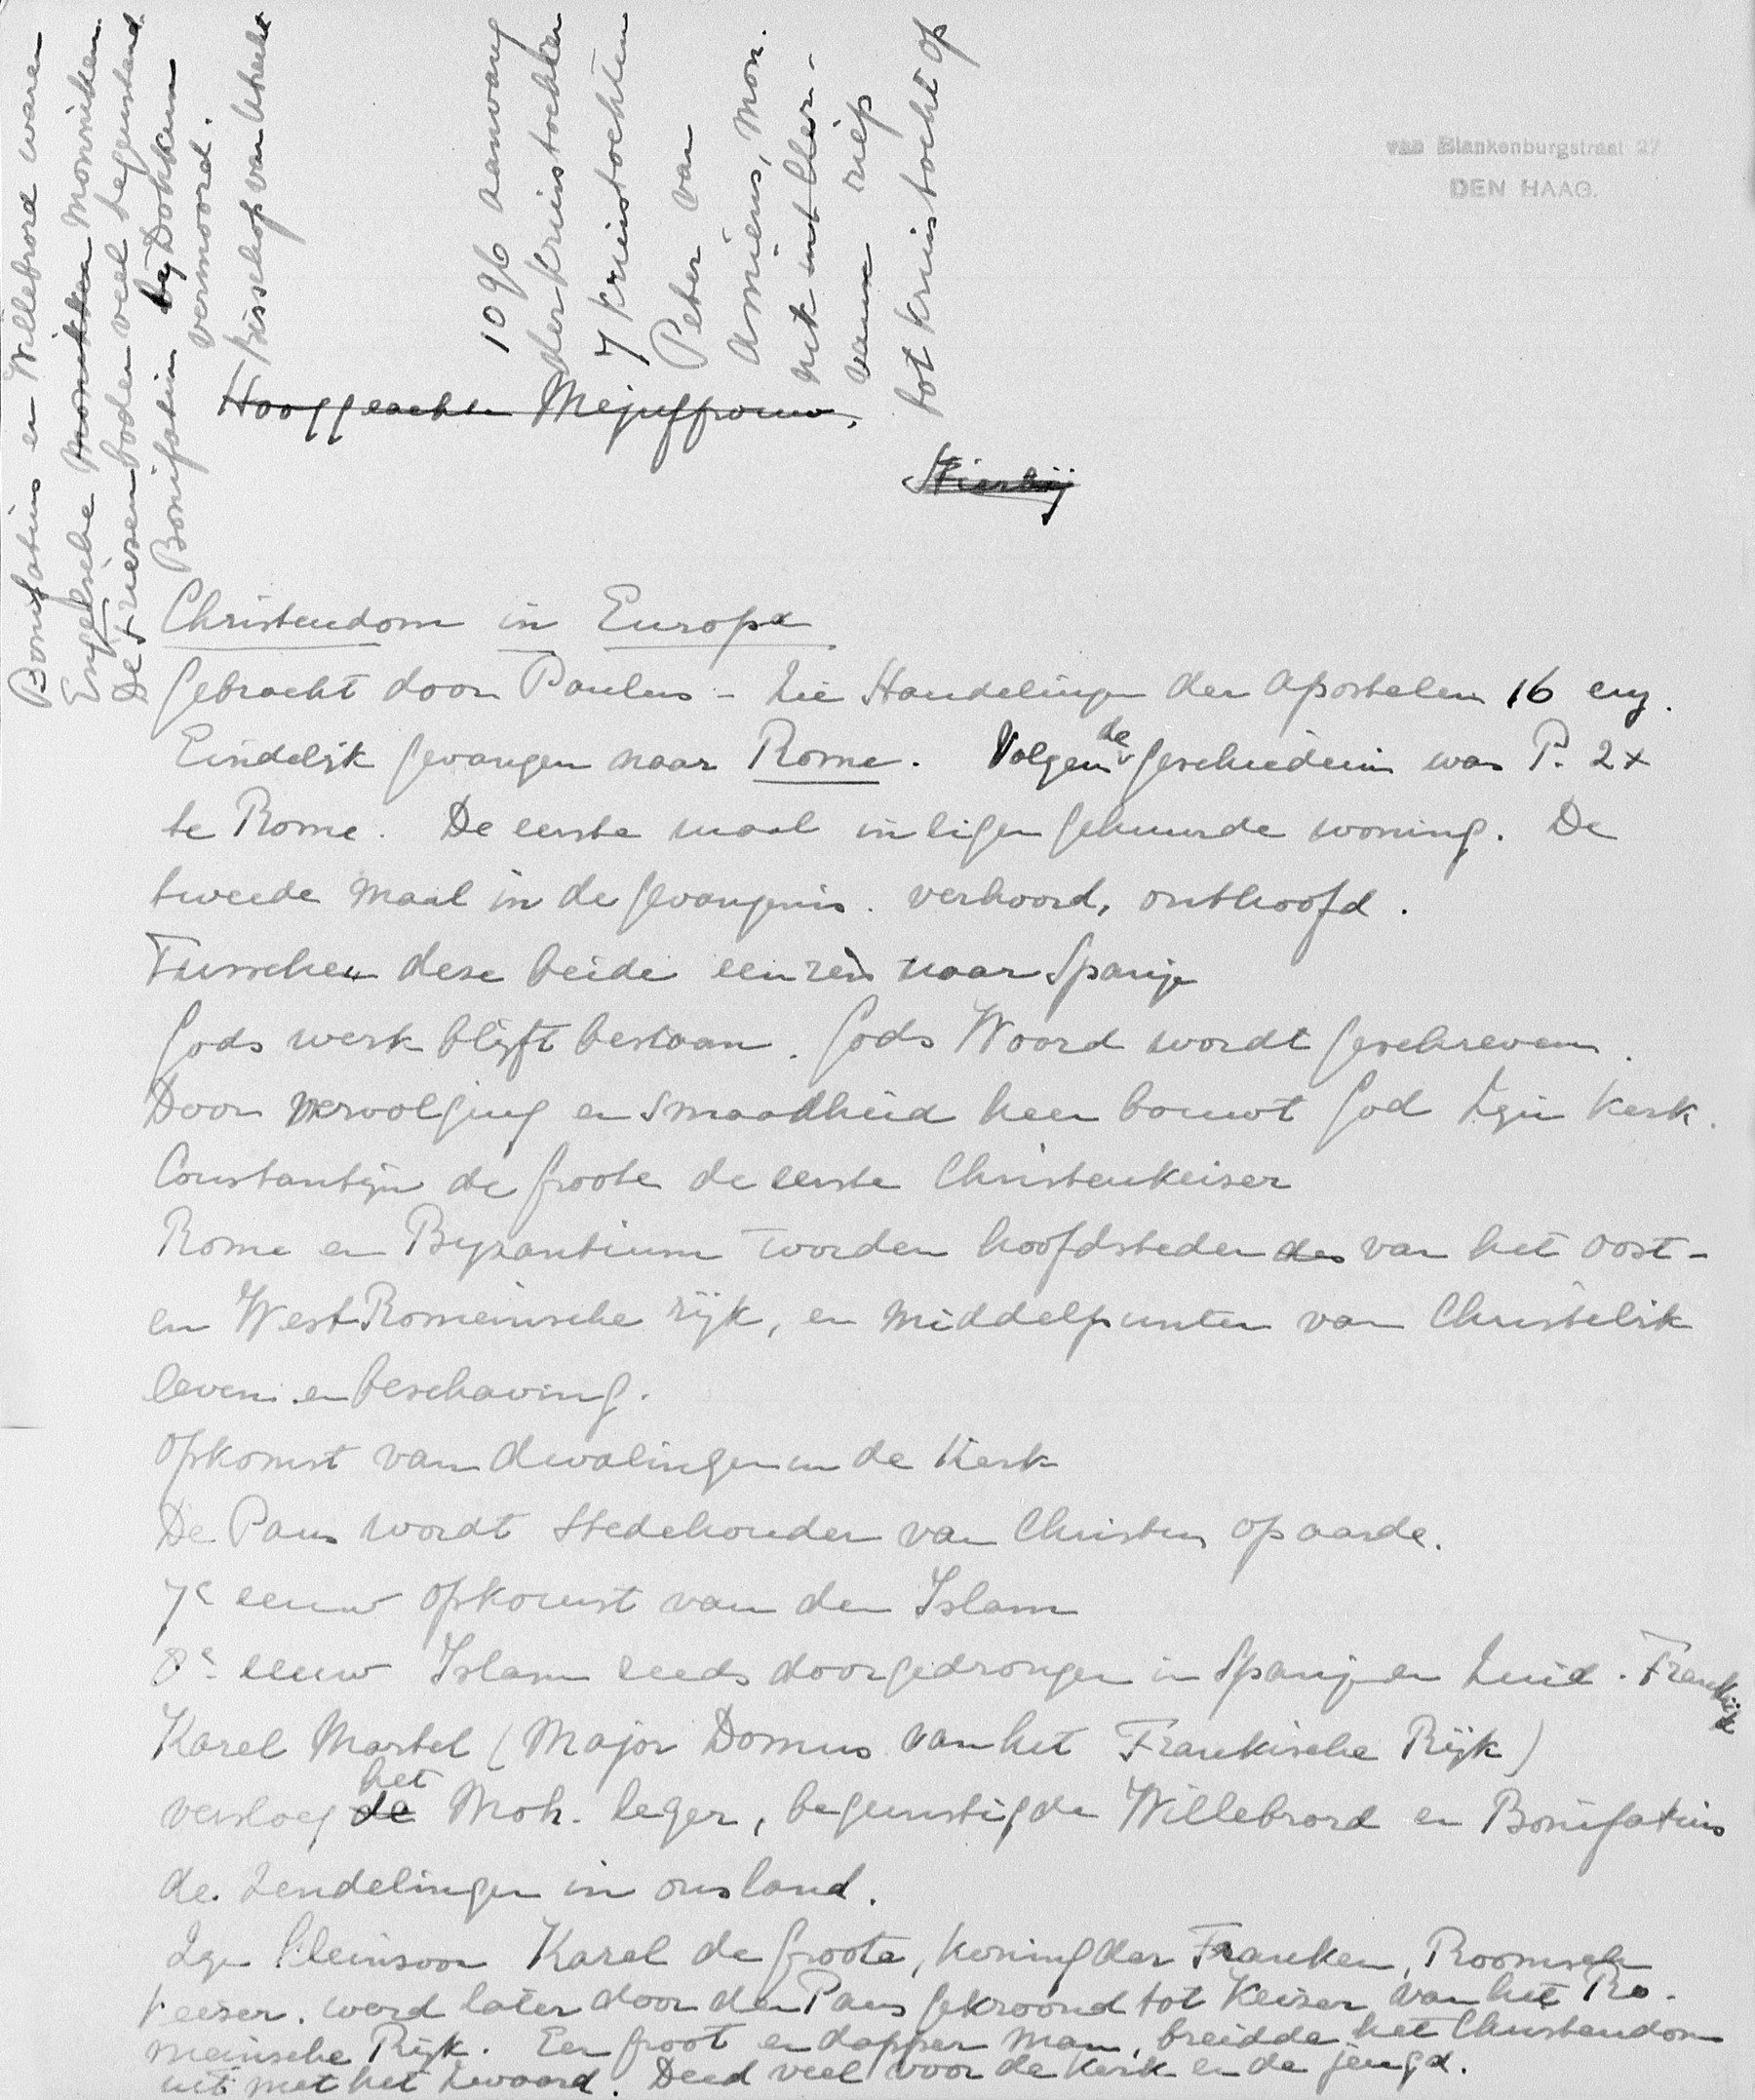 van Blankenburgstraat 27
DEN HAAG.
Bonifatius en Willebrord waren
Engelsche monikken Monniken
De Friesen boden veel tegenstand
Bonifatius bij Dokkum
vermoord.
bisschop van Utrecht
1096 aanvang
der kruistochten
7 kruistochten
Peter van
Amiens, mon.
nik uit Cler-
vaux riep
tot kruistocht op
Hooggeachte Mejuffrouw,
Hierbij
Christendom in Europa
Gebracht door Paulus - Zie Handelingen der Apostelen 16 env.
Eindelijk gevangen naar Rome. Volgens de geschiedenis was P. 2x
te Rome. De eerste maal in eigen gehuurde woning. De
tweede maal in de gevangenis. verhoord, onthoofd.
Tusschen deze beide een reis naar Spanje
Gods werk blijft bestaan. Gods Woord wordt geschreven.
Door vervolging en smaadheid heen bouwt God Zijn Kerk.
Constantijn de Groote de eerste Christenkeizer
Rome en Byzantium worden hoofdsteden des van het Oost-
en West Romeinsche rijk, en middelpunten van Christelijk
leven en beschaving.
Opkomst van dwalingen in de Kerk
De Paus wordt Stedehouder van Christus op aarde.
7e eeuw opkomst van den Islam
8e eeuw Islam reeds doorgedrongen in Spanje en Zuid-Frankrijk
Karel Martel (Major Domus van het Frankische Rijk)
versloeg de het Moh. leger, begunstigde Willebrord en Bonifatius
de zendelingen in ons land.
Zijn kleinzoon Karel de Groote, koning der Franken, Roomsch
keizer. werd later door den Paus gekroond tot Keizer van het Ro-
meinsche Rijk. Een groot en dapper man, breidde het Christendom
uit met het zwaard. Deed veel voor de Kerk en de jeugd.